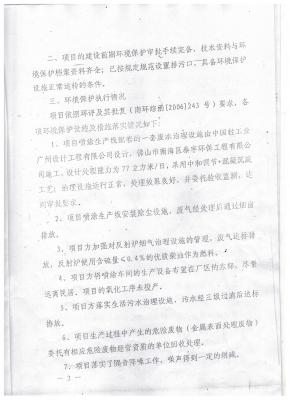 二、项目的建设前期环境保护审批手续完备，技术资料与环
境保护档案资料齐全；已按规定规范设置排污口，具备环境保护
设施正常运转的条件。
三、环境保护执行情况
项目依照环评及其批复（南环综函[2006]243 号）要求，各
项环境保护设施及措施落实情况如下：
1、项目喷涂生产线配套的一套废水治理设施由中国轻工业
广州设计工程有限公司设计，佛山市南海区泰宇环保工程有限公
司施工，设计处理能力为 77 立方米/日，采用中和调节+混凝沉淀
工艺；治理设施运行正常，处理效果良好，并委托验收监测，达
到审批要求。
2、项目喷涂生产线安装除尘设施，废气经处理后通过烟囱
排放。
3、项目方加强对反射炉烟气治理设施的管理，废气达标排
放，反射炉使用含硫量≤0.4%的优质柴油作为燃料。
4、项目方将喷涂车间的生产设备布置在厂区的东部，尽量
远离民居。项目的氧化工序未投产。
5、项目方落实生活污水治理设施，污水经三级过滤后达标
排放。
6、项目生产过程中产生的危险废物（金属表面处理废物）
委托有相应危险废物经营资质的单位回收处理。
7、项目落实了隔音降噪工作，噪声得到一定的削减。
— 2 —